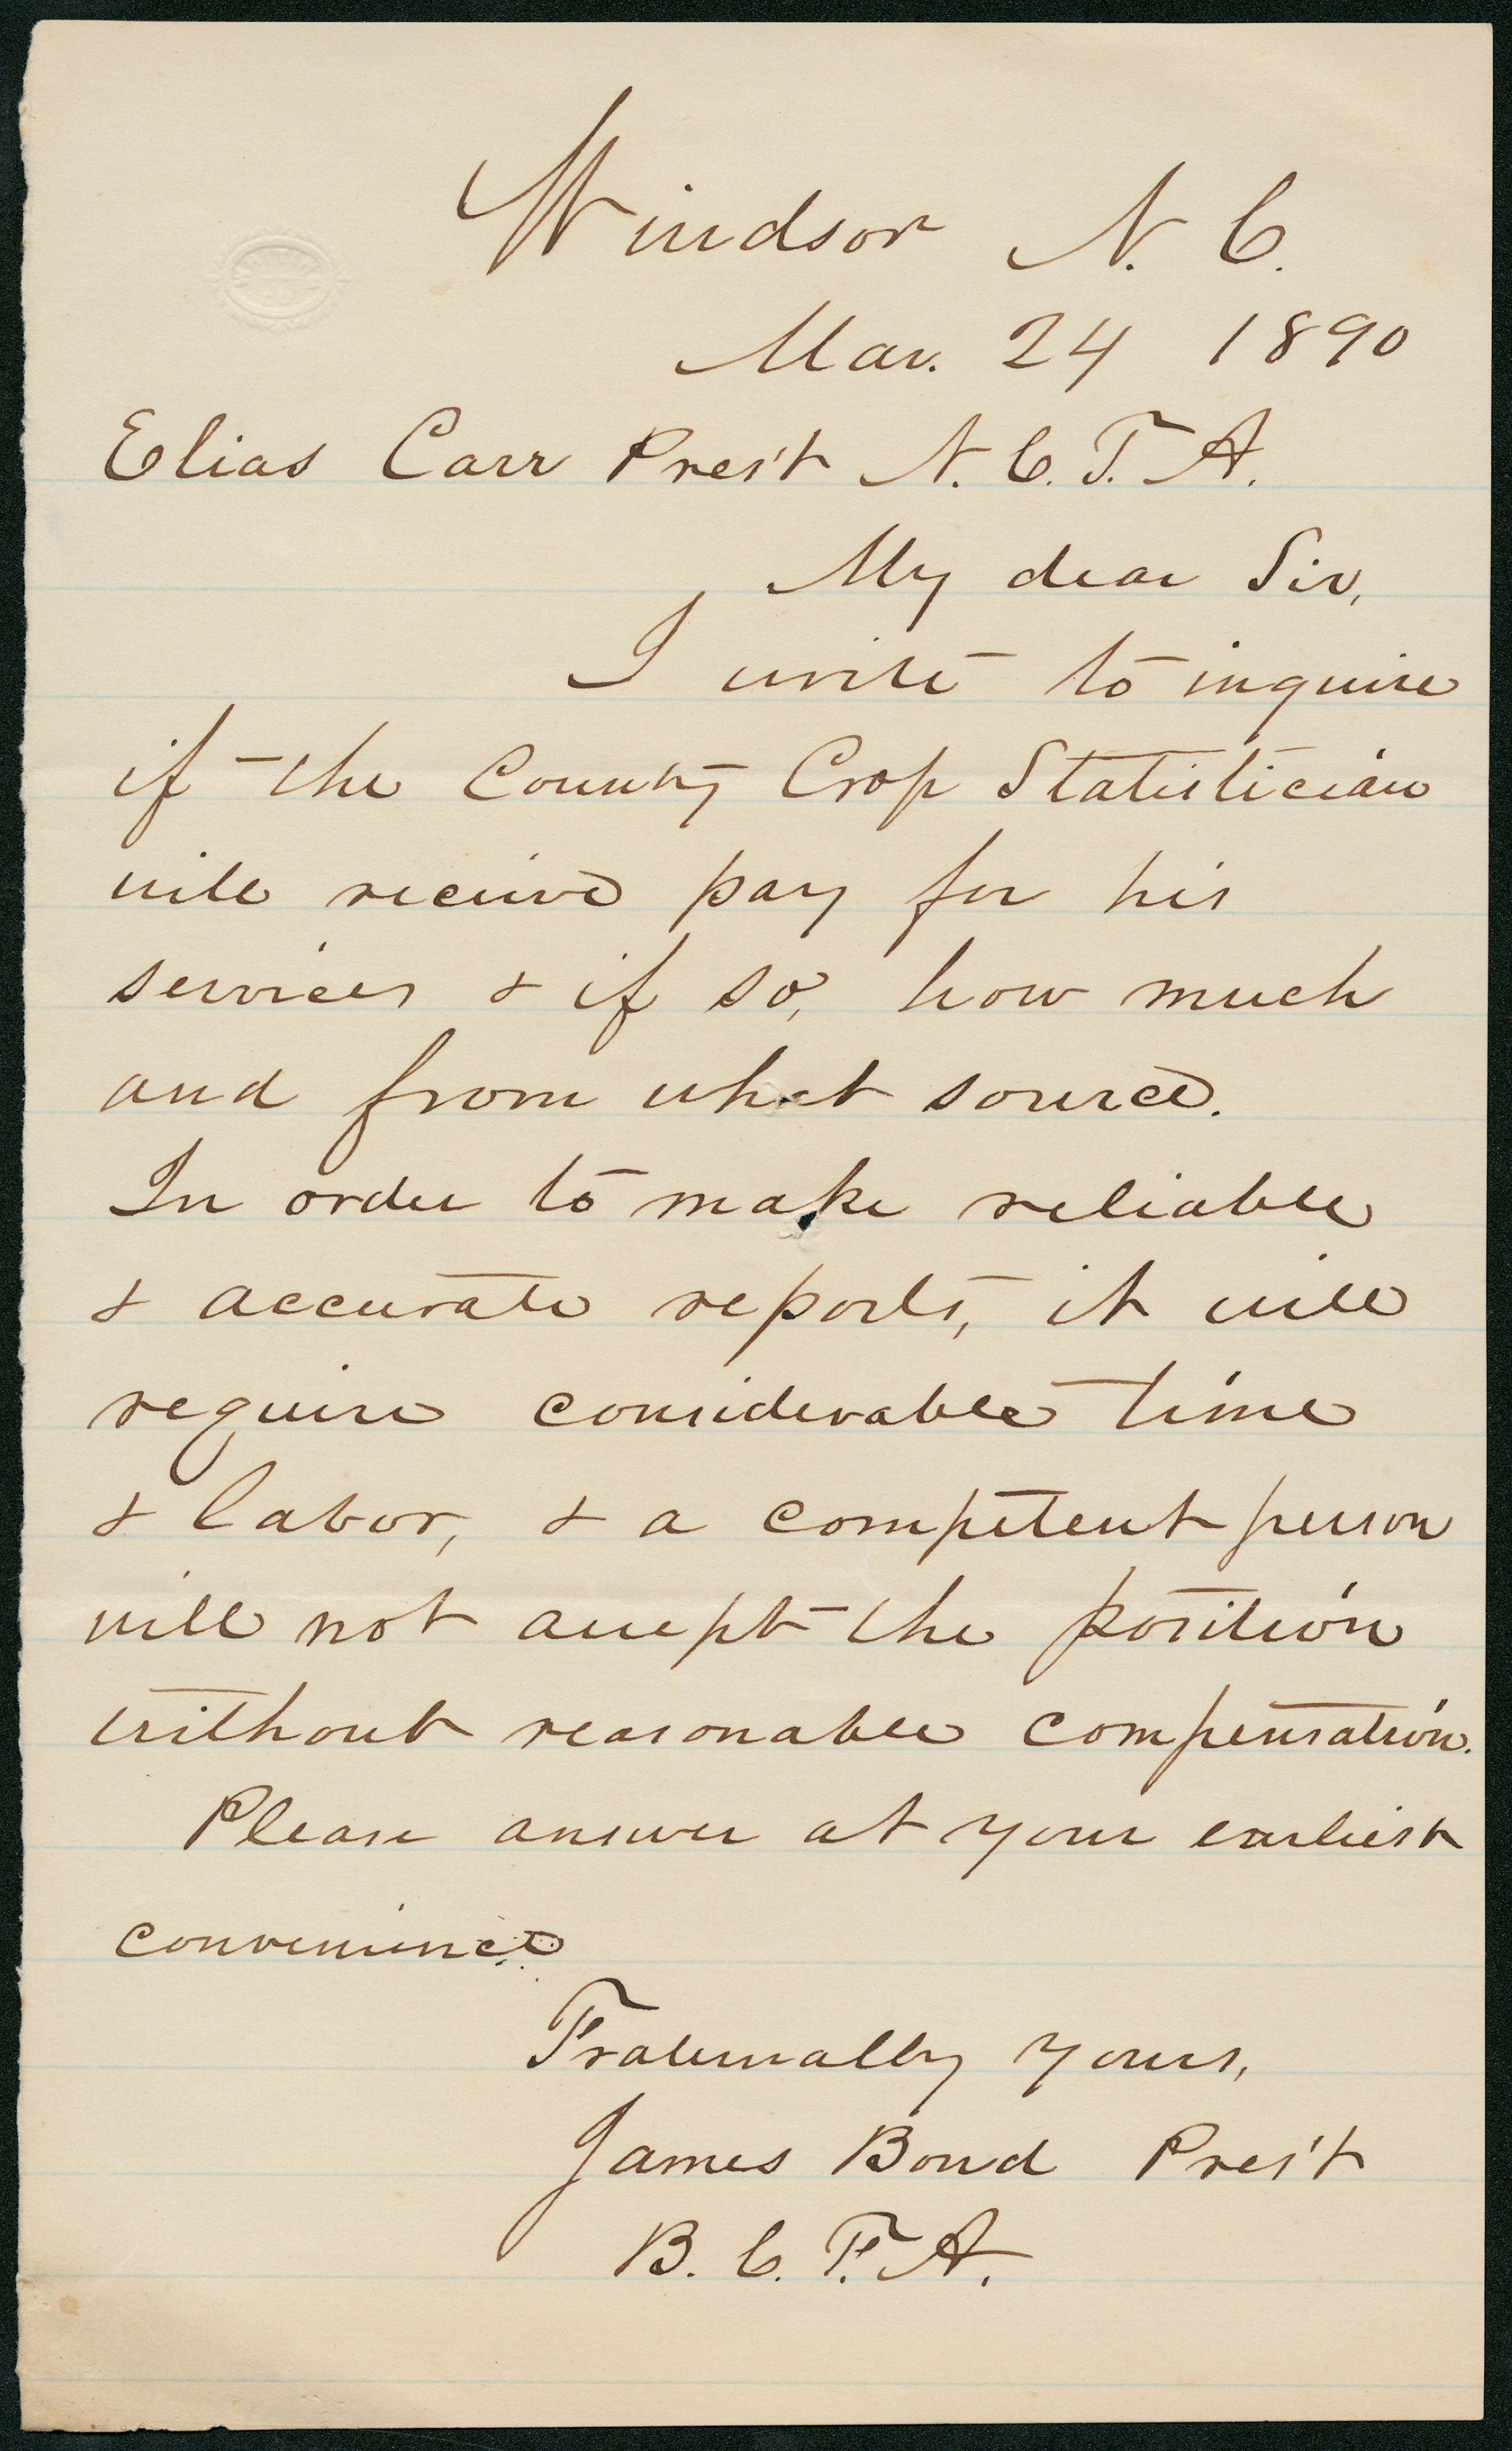 Windsor N. C.
Mar. 24 1890
Elias Carr Pres't N. C. F. A.
My dear Sir,
I write to inquire
if the County Crop Statistician
will receive pay for his
services & if so, how much
and from what source.
In order to make reliable
& accurate reports, it will
require considerable time
& labor, & a competent person
will not accept the position
without reasonable compensation.
Please answer at your earliest
convenience
Fraternally yours,
James Bond Pres't
B. C. F. A.